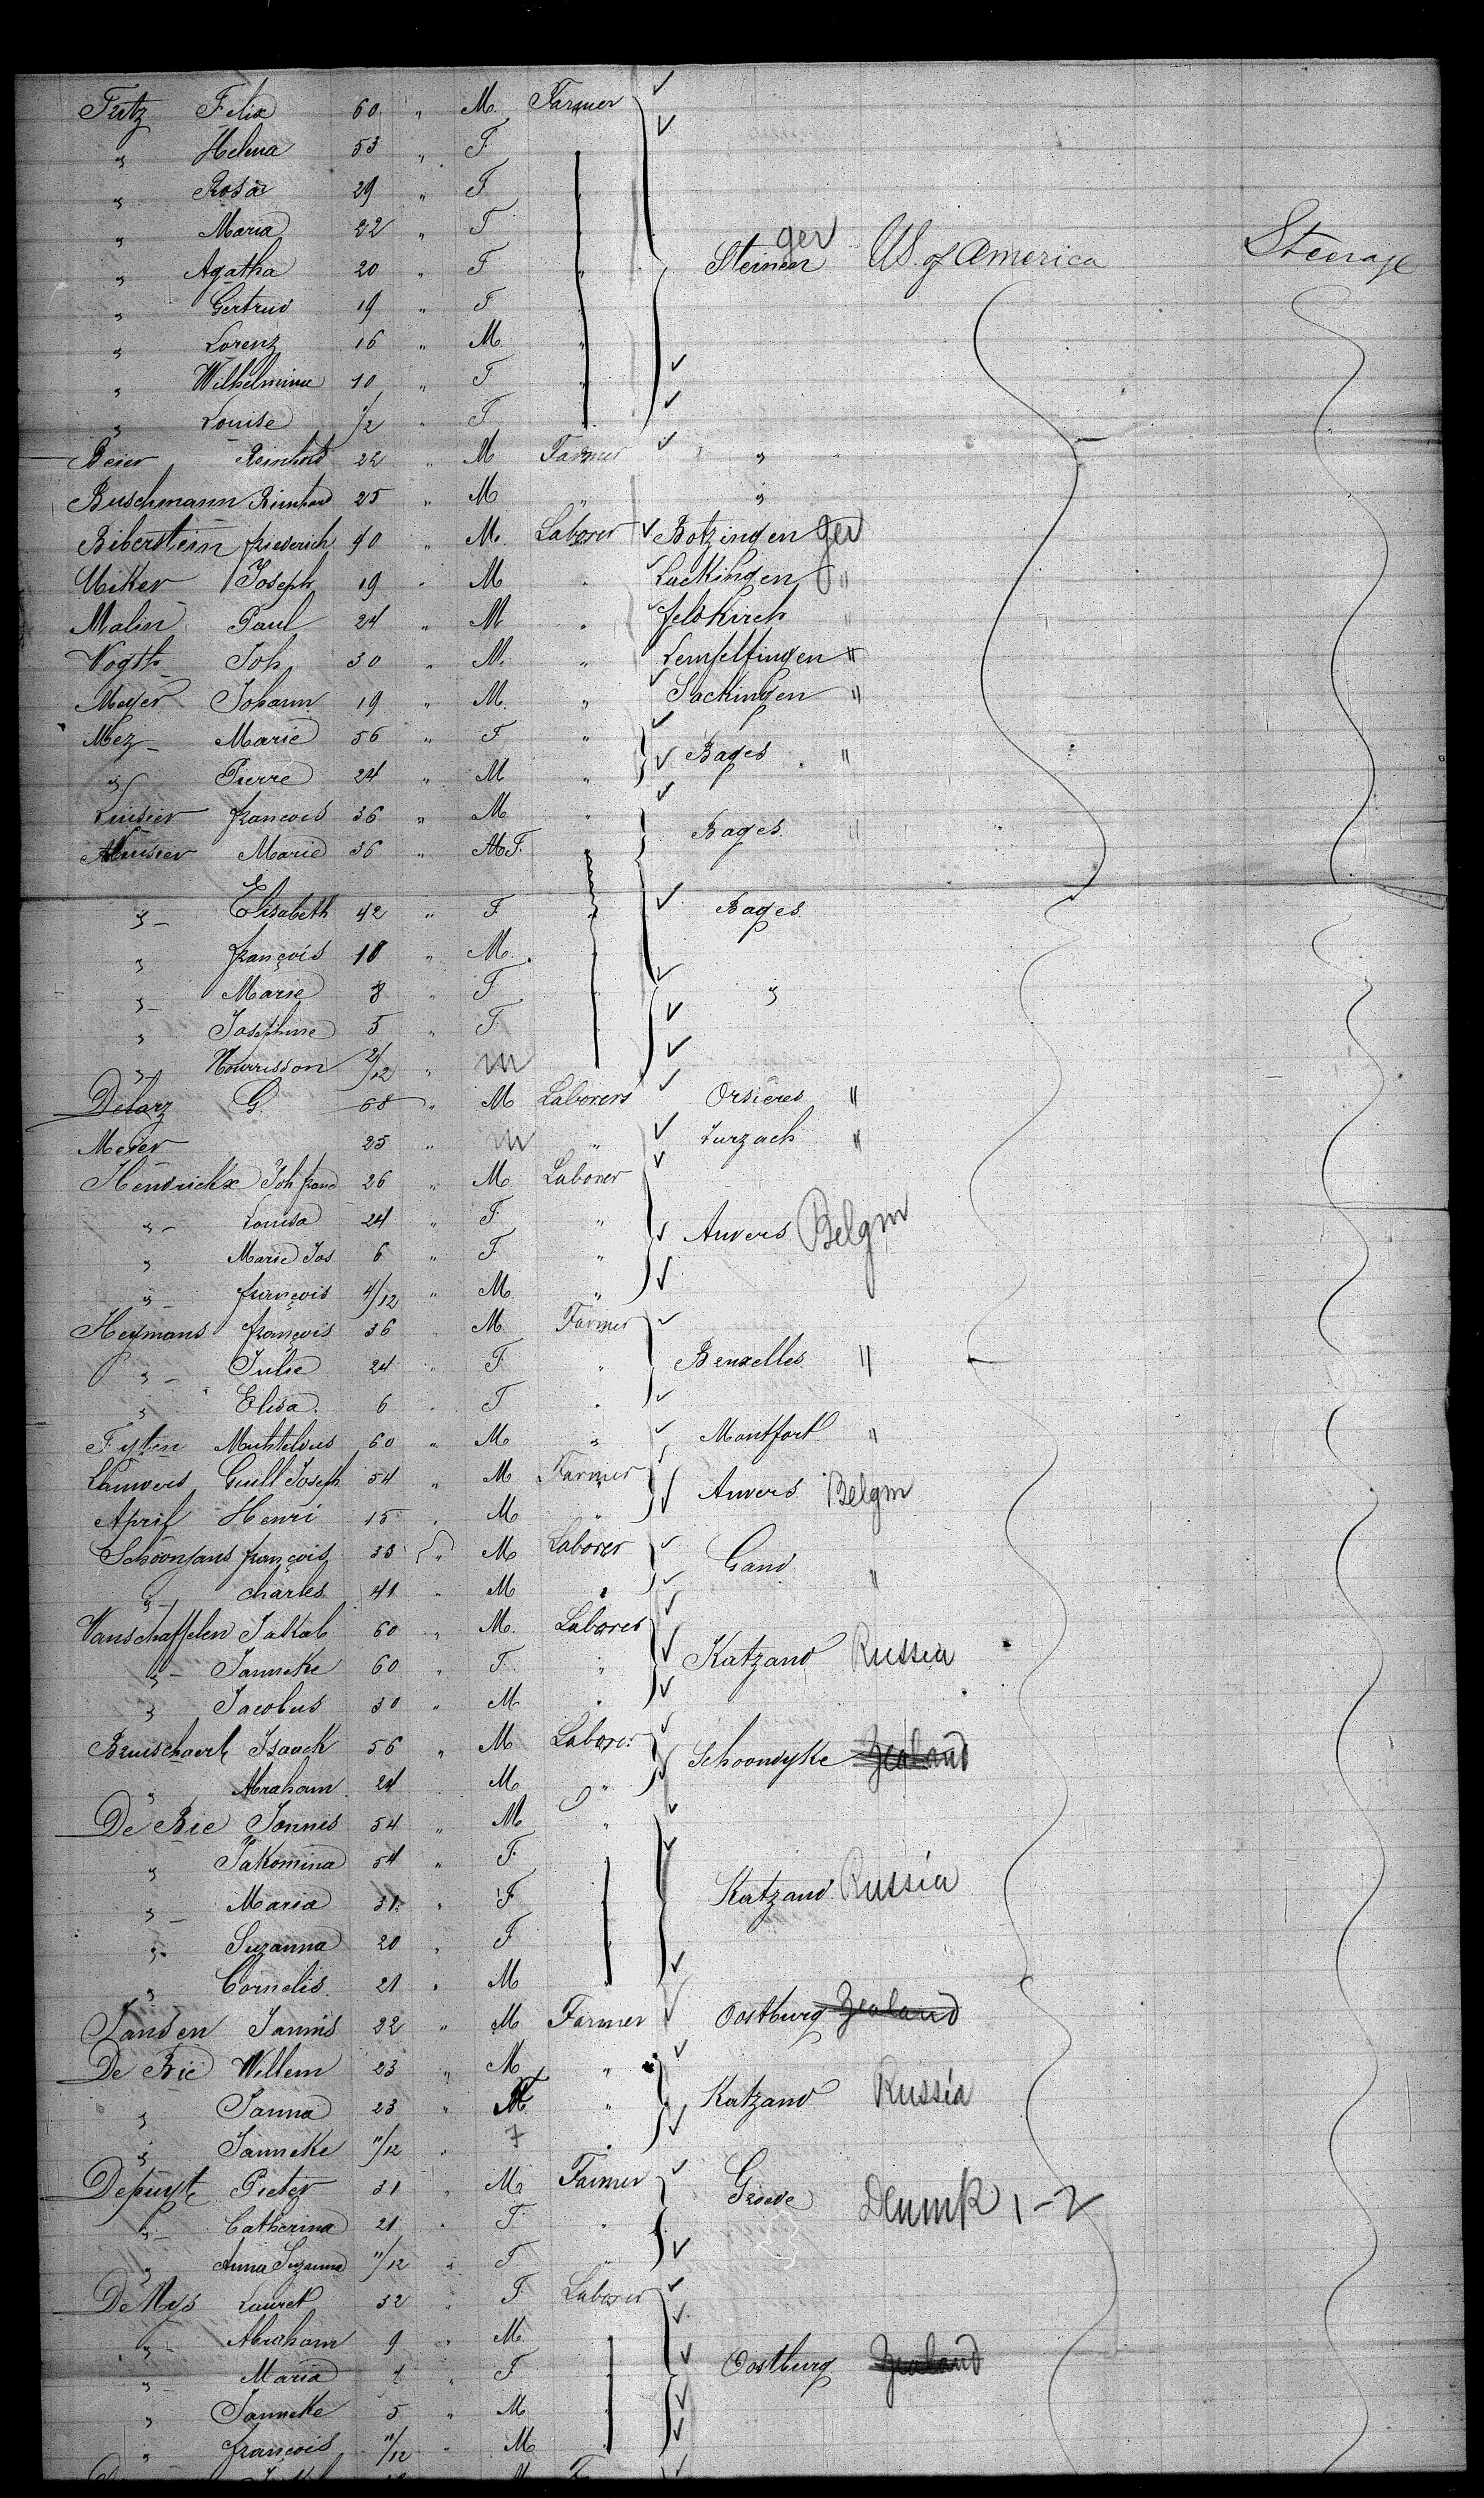 Fütz Felix 60 " M. Farmer
" Helena 53 " F
" Rosa 29 " F
" Maria 22 " F
" Agatha 20 " F " Steinen ger US. of America Steerage
" Gertrud 19 " F
" Lorenz 16 " M. "
" Wilhelmine 10 " F "
" Louise 1/2 " F
Beier Reinhold 22 " M Farmer "
Buschmann 25 " M " "
Biberstein friederich 40 " M. Laborer Botzingen ger
Joseph 19 " M " "
Malin Paul 24 " M " feldkirch "
Vogth Joh 30 " M. " "
Meyer Johann 19 " M. " Sackingen "
Mez Marie 56 " F " Bages "
" Pierre 24 " M "
Luisier francois 36 " M " Bages "
Luisier Marie 36 " M F. "
" Elisabeth 42 " F " Bages
" françois 10 " M.
" Marie 8 " F "
" Josephine 5 " F
" Nourrisson 2/12 " M
Delarz G. 68 " M Laborers Orsieres "
Meier 25 " M " Zurzach "
Hendrickx Joh franc 26 " M. Laborer
" Louisa 24 " F " Anvers Belgm
" Marie Jos 6 " F "
" françois 4/12 " M. "
Heymans françois 36 " M. Farmer
" Julie 24 " F " Bruxelles "
" Elisa 6 " F "
Fyten 60 " M " Montfort "
Lauwers Guill Joseph 54 " M Farmer Anvers Belgm
April Henri 15 " M "
Schoonjans françois 33 " M Laborer Gand
" charles 41 " M " "
Vanschaffelen Jakob 60 " M. Laborer
" Janneke 60 " F " Katzand Russia
" Jacobus 30 " M "
Isaack 56 " M Laborer Schoondyke Zealand
" Abraham 24 " M "
De Bie Jannis 54 " M "
" Jakomina 54 " F
" Maria 31 " F Katzand Russia
" Suzanna 20 " F
" Cornelis 21 " M "
Jansen Jannis 22 " M Farmer Oostburg Zealand
De Bie Willem 23 " M "
" Janna 23 " F " Katzand Russia
" Janneke 11/12 " F "
Depuyt Pieter 31 " M Farmer Groede Denmk 1-2
" Catherina 21 " F "
" Anna Suzanna 11/12 " F "
DeMys Lauret 32 " F Laborer
" Abraham 9 " M
" Maria " F Oostburg Zealand
" Janneke 5 " M
" françois 11/12 " M